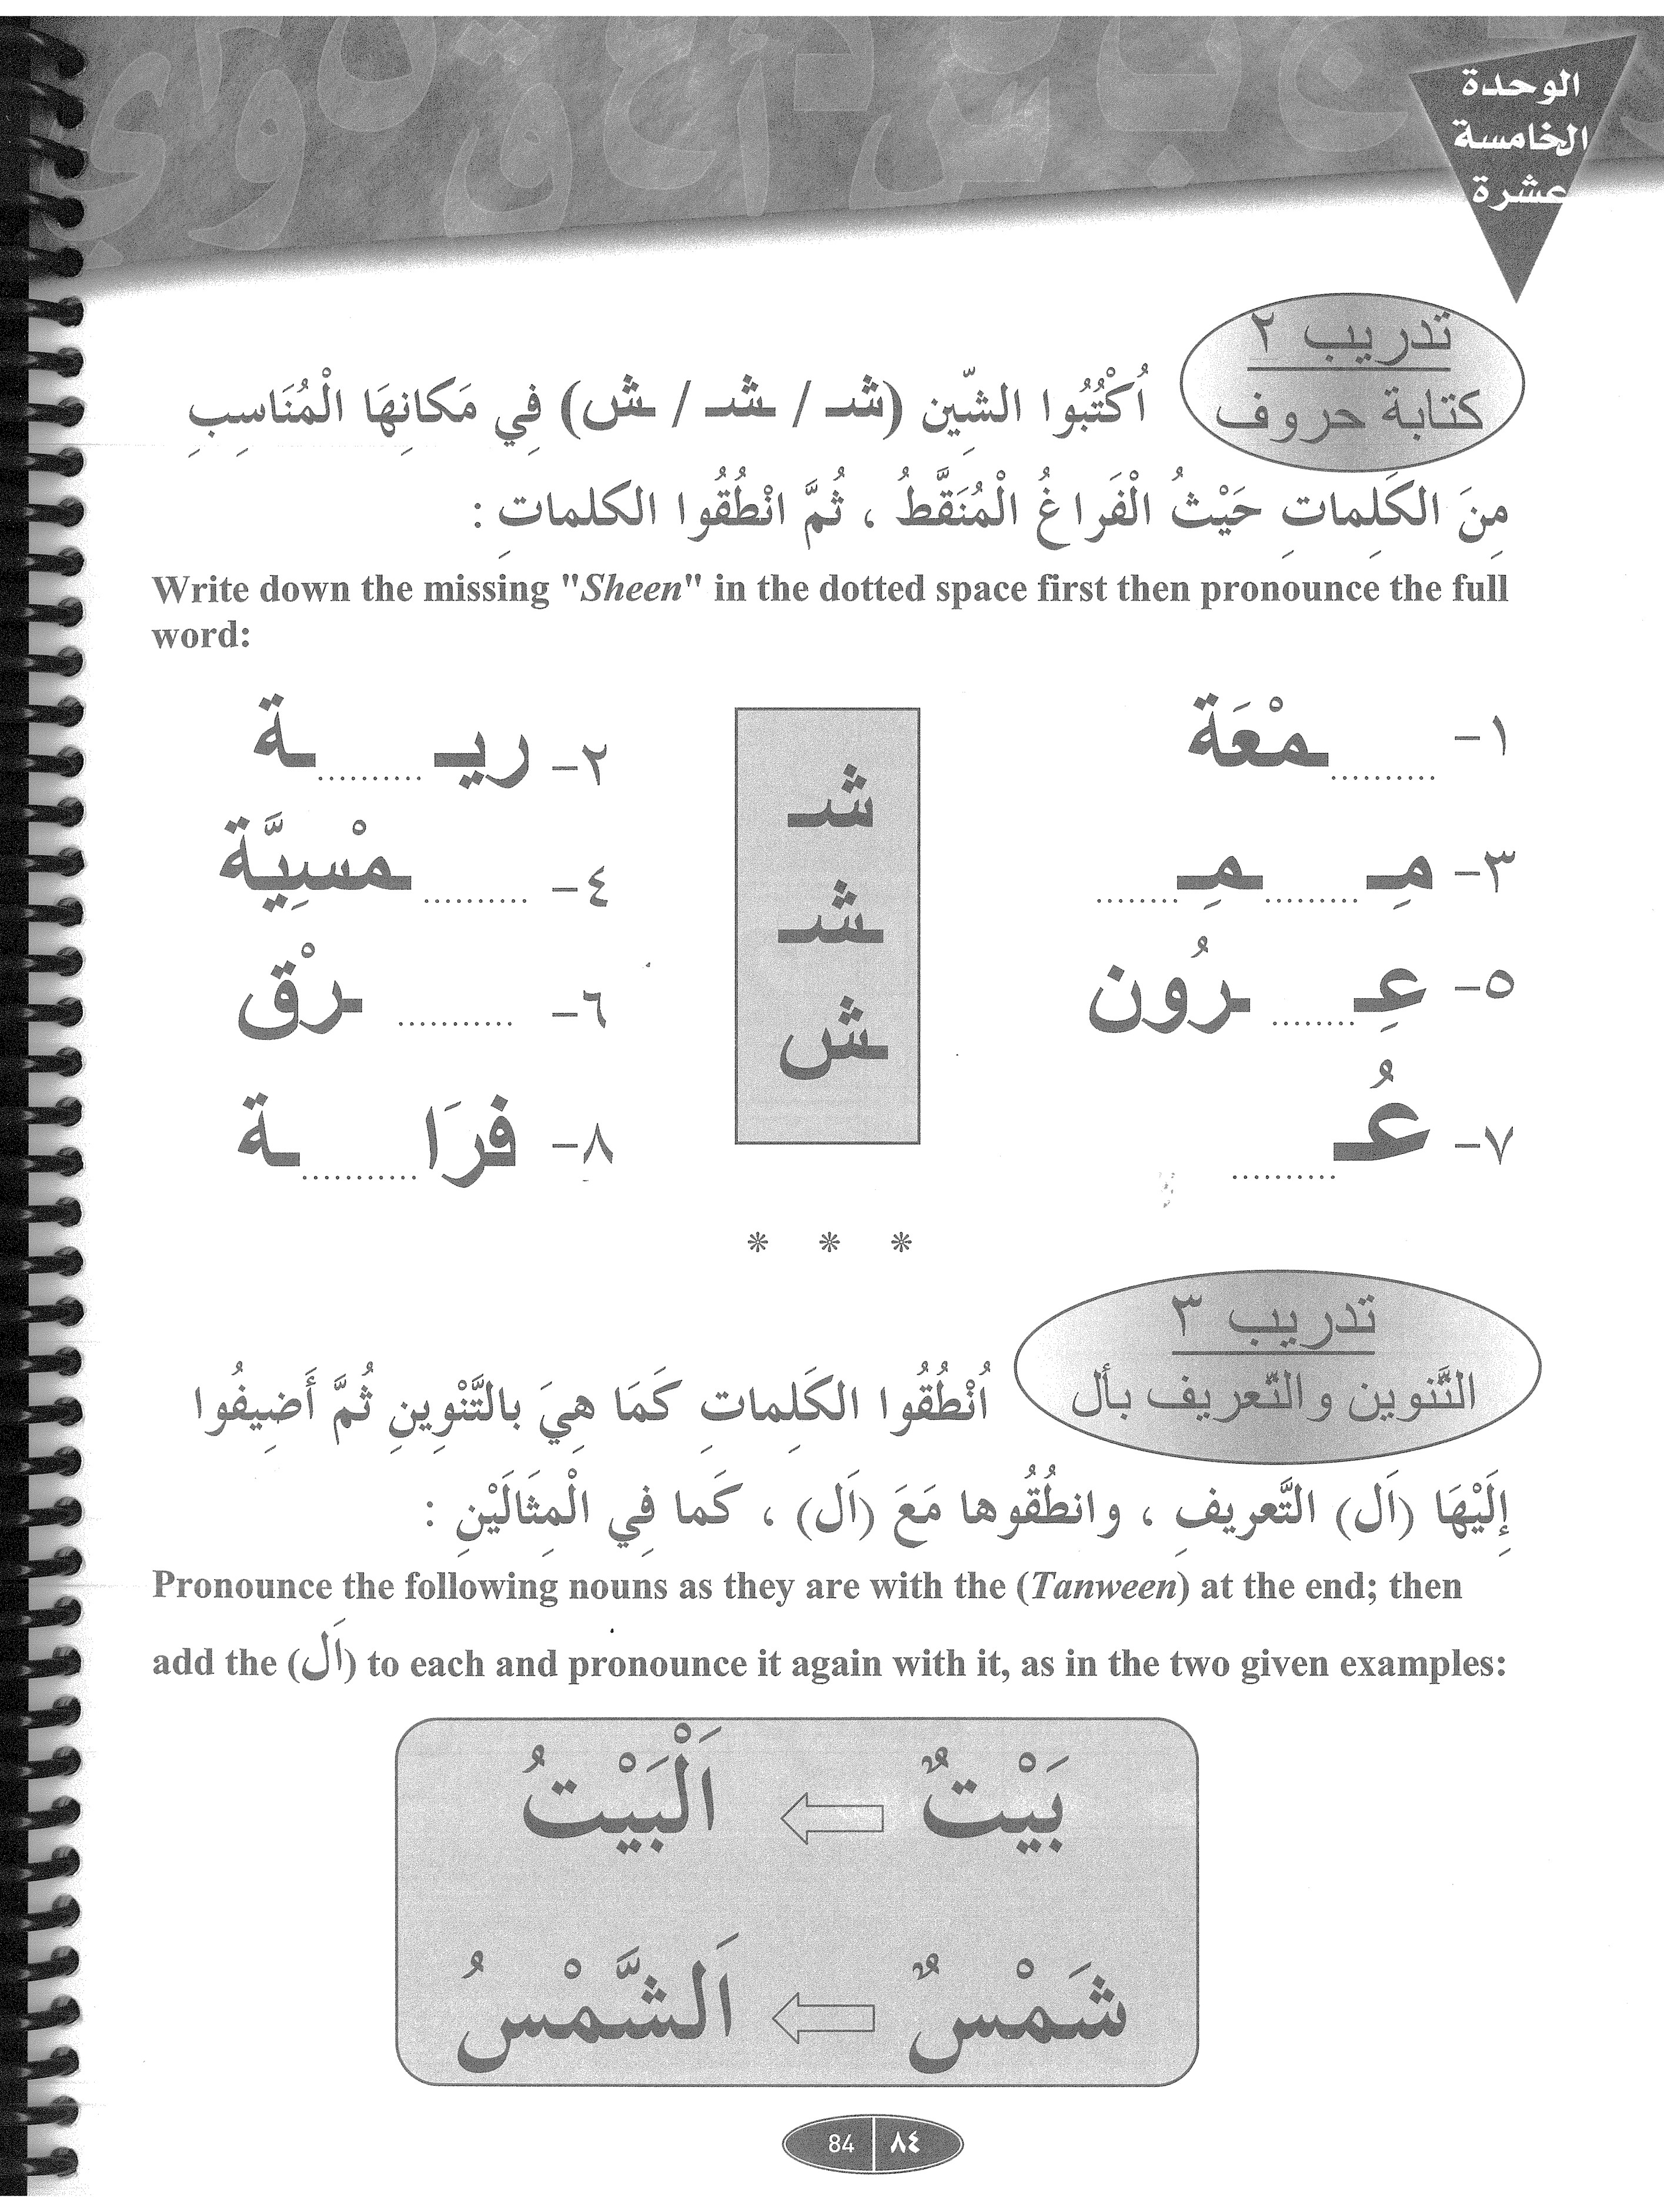 الوحدة
الخامسة
عشرة
تدريب ٢
كتابة حروف
اُكْتُبُوا الشِّين (شـ / ـشـ / ـش) فِي مَكانِهَا الْمُنَاسِبِ
مِنَ الكَلِماتِ حَيْثُ الْفَراغُ الْمُنَقَّطُ ، ثُمَّ انْطُقُوا الكلماتِ :
Write down the missing "Sheen" in the dotted space first then pronounce the full
word:
١- ..........ـمْعَة
٢- ريـ..........ـة
٣- مِـ.........ـمِـ........
٤- ..........ـمْسِيَّة
٥- عِـ........ـرُون
٦- ........... ـرْق
٧- عُـ..........
٨- فرَا...........ـة
شـ
ـشـ
ـش
* * *
تدريب ٣
التَّنوين والتّعريف بأل
اُنْطُقُوا الكَلِماتِ كَمَا هِيَ بالتَّنْوِينِ ثُمَّ أَضِيفُوا
إِلَيْهَا (اَل) التَّعريفِ ، وانطُقُوها مَعَ (اَل) ، كَما فِي الْمِثَالَيْنِ :
Pronounce the following nouns as they are with the (Tanween) at the end; then
add the (اَل) to each and pronounce it again with it, as in the two given examples:
بَيْتٌ ⇦ اَلْبَيْتُ
شَمْسٌ ⇦ اَلشَّمْسُ
84 | ٨٤